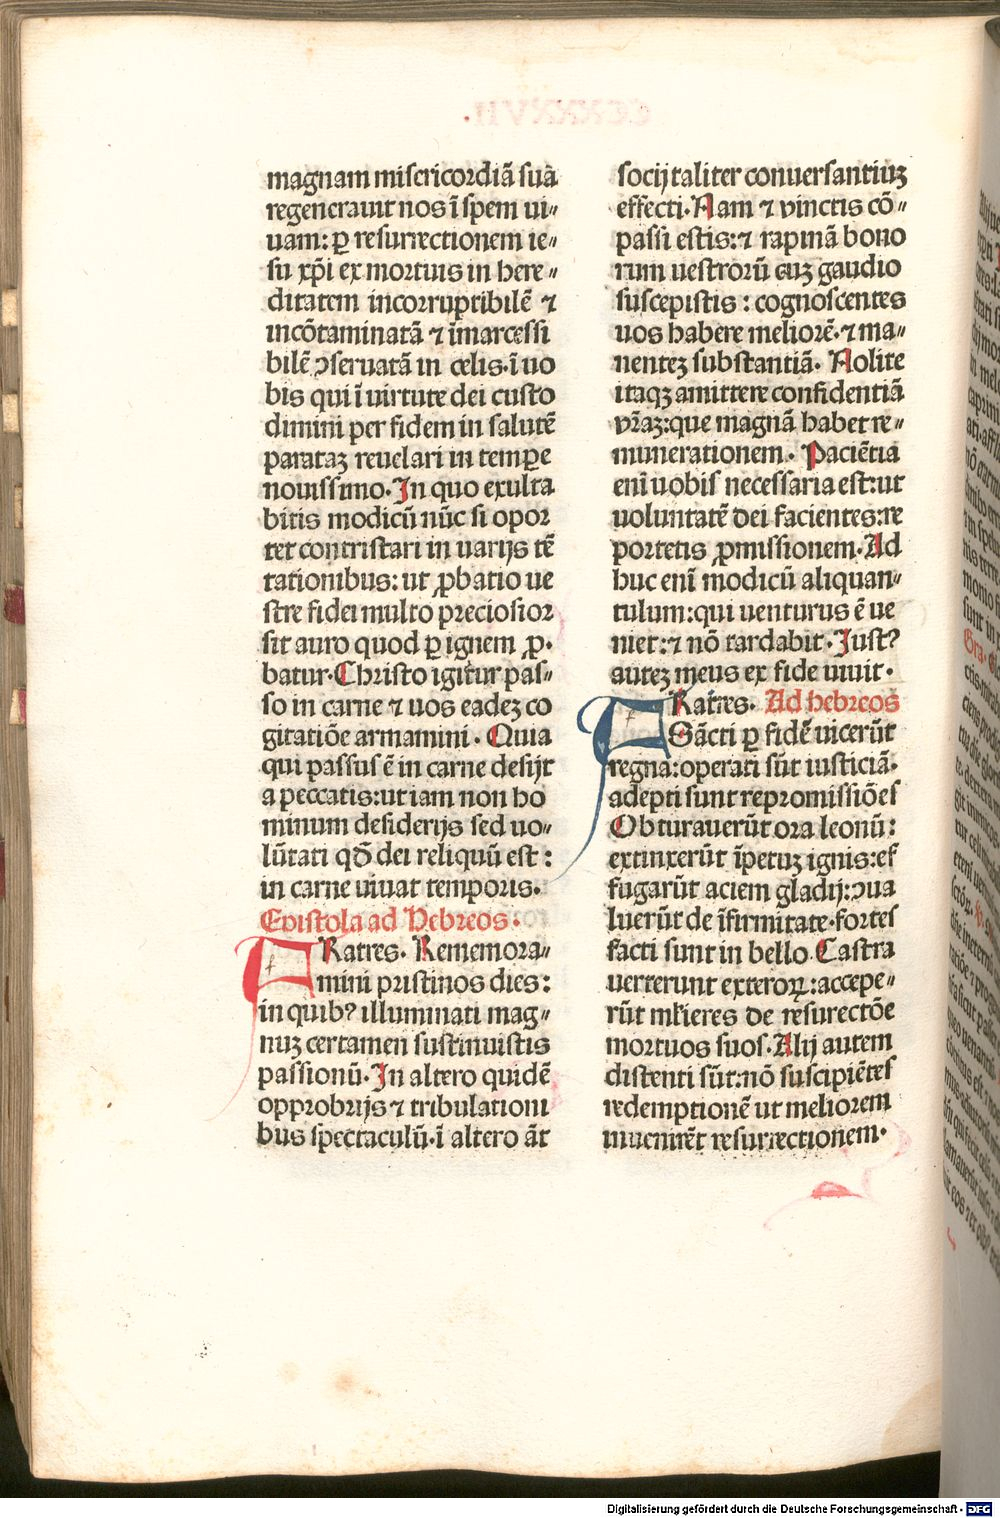 magnam misericordiã suã
regenerauit nos ĩ spem ui⸗
uam: ꝑ resurrectionem ie⸗
su xp̃i ex mortuis in here⸗
ditatem incorruptibilẽ ⁊
incõtaminatã ⁊ ĩmarcessi
bilẽ ꝯseruatã in celis. ĩ uo
bis qui ĩ uirtute dei custo
dimini per fidem in salutẽ
parataꝫ reuelari in tempe
nouissimo. In quo exulta
bitis modicũ nũc si opor
tet contristari in uarijs tẽ
tationibus: ut ꝓbatio ue
stre fidei multo preciosior
sit auro quod ꝑ ignem ꝓ.
batur. Christo igitur pas⸗
so in carne ⁊ uos eadeꝫ co
gitatiõe armamini. Quia
qui passus ẽ in carne desijt
a peccatis: ut iam non ho
minum desiderijs sed uo⸗
lũtati qđ dei reliquũ est:
in carne uiuat temporis.
Epistola ad Hebreos.
FRatres. Rememora⸗
mini pristinos dies:
in quibꝰ illuminati mag⸗
nuꝫ certamen sustinuistis
passionũ. In altero quidẽ
opprobrijs ⁊ tribulationi
bus spectaculũ. ĩ altero ãt
socij taliter conuersantiuꝫ
effecti. Nam ⁊ vinctis cõ⸗
passi estis: ⁊ rapinã bono
rum uestrorũ cuꝫ gaudio
suscepistis: cognoscentes
uos habere meliorẽ. ⁊ ma⸗
nenteꝫ substantiã. Nolite
itaqꝫ amittere confidentiã
vr̃aꝫ: que magnã habet re⸗
munerationem. Paciẽtia
enĩ uobis necessaria est: ut
voluntatẽ dei facientes: re
portetis ꝓmissionem. Ad
huc enĩ modicũ aliquan⸗
tulum: qui uenturus ẽ ue
niet: ⁊ nõ tardabit. Iustꝰ
auteꝫ meus ex fide uiuit.
FRatres. Ad hebreos
Sãcti ꝑ fidẽ uicerũt
regna: operati sũt iusticiã.
adepti sunt repromissiões
Obturauerũt ora leonũ:
extinxerũt ĩpetuꝫ ignis: ef
fugarũt aciem gladij: ꝯua
luerũt de ĩfirmitate. fortes
facti sunt in bello. Castra
uerterunt exteroꝝ: accepe⸗
rũt ml̃ieres de resurectõe
mortuos suos. Alij autem
distenti sũt: nõ suscipiẽtes
redemptionẽ ut meliorem
inuenirẽt resurrectionem.
Digitalisierung gefördert durch die Deutsche Forschungsgemeinschaft - DFG